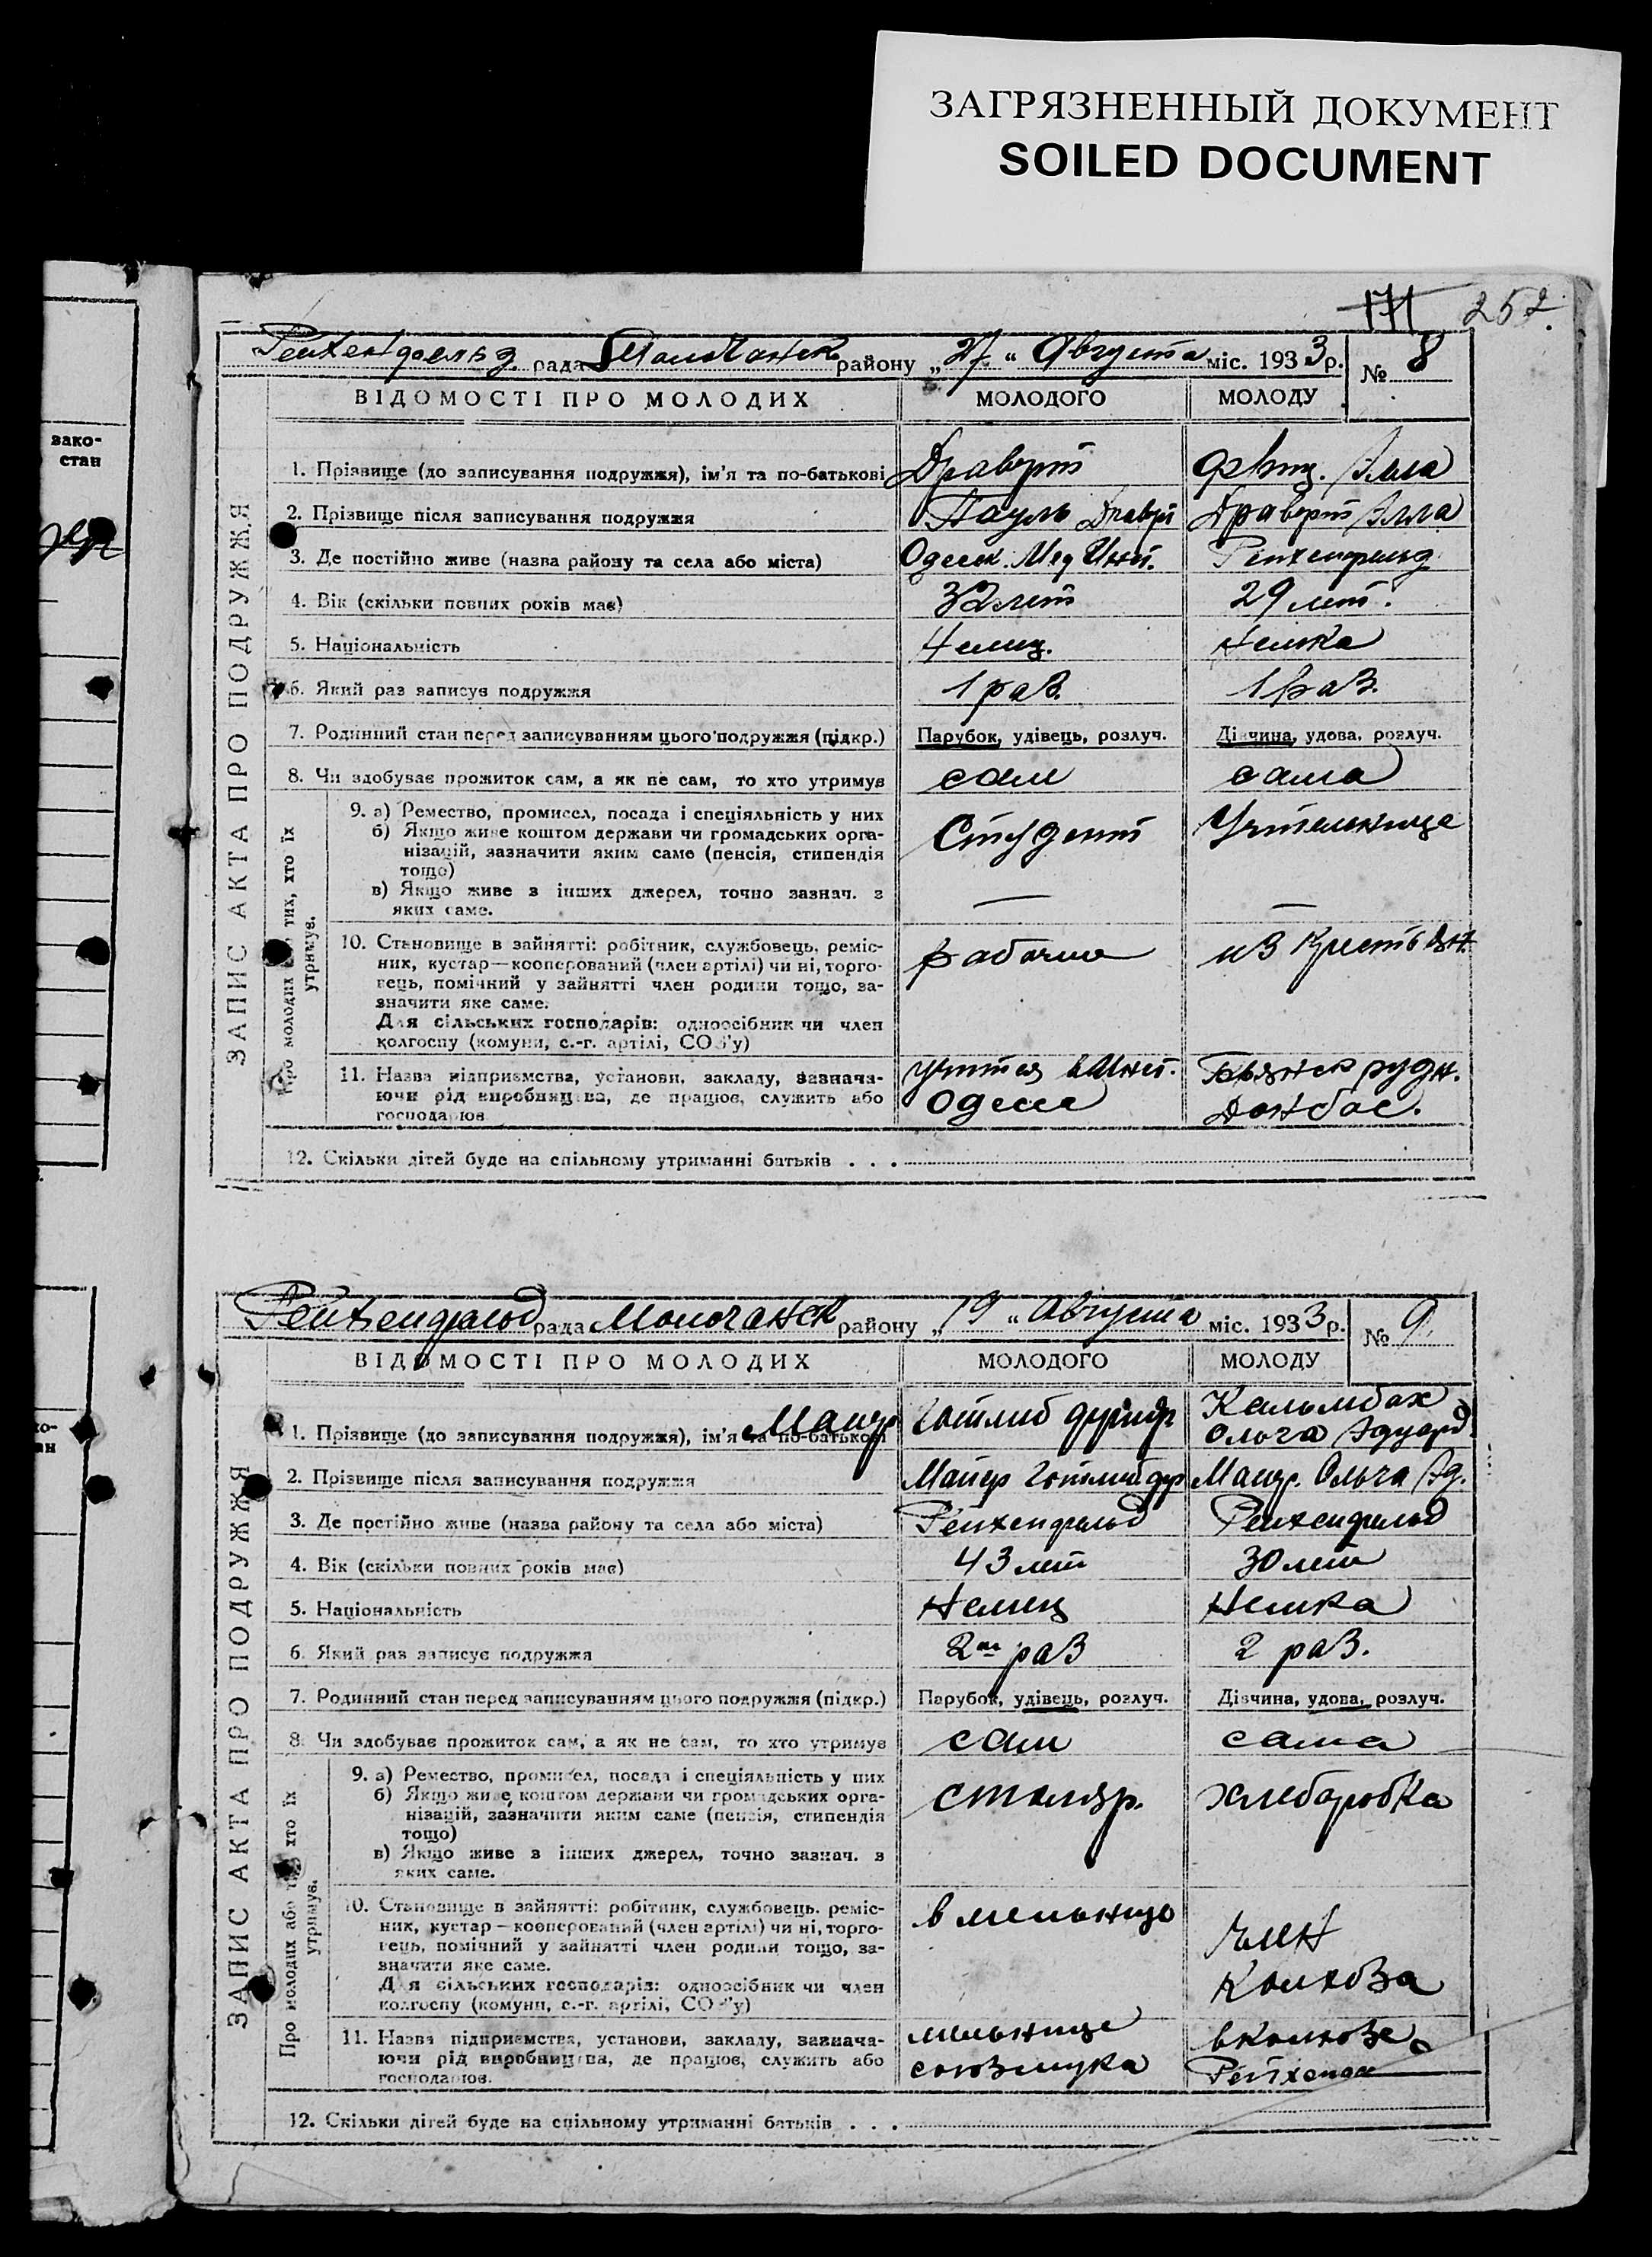 ЗАГРЯЗНЕННЫЙ ДОКУМЕНТ
SOILED DOCUMENT
171 252.
Рейхенфельд рада Молочанск району „27“ Августа міс. 1933 р. № 8
ВІДОМОСТІ ПРО МОЛОДИХ МОЛОДОГО МОЛОДУ
зако-
стан
ЗАПИС АКТА ПРО ПОДРУЖЖЯ
1. Прізвище (до записування подружжя), ім'я та по-батькові Драверт Элла
2. Прізвище після записування подружжя Пауль Драверт Драверт Элла
3. Де постійно живе (назва району та села або міста) Одесск. Мед Инст. Рейхенфельд
4. Вік (скільки повних років має) 32 лет 29 лет.
5. Національність Немец. Немка
6. Який раз записує подружжя 1 раз. 1 раз.
7. Родинний стан перед записуванням цього подружжя (підкр.) Парубок, удівець, розлуч. Дівчина, удова, розлуч.
8. Чи здобуває прожиток сам, а як не сам, то хто утримує сам сама
Про молодих або тих, хто їх утримує.
9. а) Ремество, промисел, посада і спеціяльність у них Студент Учительница
б) Якщо живе коштом держави чи громадських орга-
нізацій, зазначити яким саме (пенсія, стипендія
тощо)
в) Якщо живе з інших джерел, точно зазнач. з — —
яких саме.
10. Становище в зайнятті: робітник, службовець, реміс- рабочие из крестьян
ник, кустар—кооперований (член артілі) чи ні, торго-
вець, помічний у зайнятті член родини тощо, за-
значити яке саме.
Для сільських господарів: одноосібник чи член
колгоспу (комуни, с.-г. артілі, СОЗ'у)
11. Назва підприємства, установи, закладу, зазнача- учится в Инст. Брянск рудн.
ючи рід виробництва, де працює, служить або Одесса Донбас.
господарює
12. Скільки дітей буде на спільному утриманні батьків . . .
Рейхенфельд рада Молочанск району „19“ Августа міс. 1933 р. № 9
ВІДОМОСТІ ПРО МОЛОДИХ МОЛОДОГО МОЛОДУ
ЗАПИС АКТА ПРО ПОДРУЖЖЯ
1. Прізвище (до записування подружжя), ім'я та по-батькові Майер Готлиб Фридр Кальмбах
Ольга Эдуард
2. Прізвище після записування подружжя Майер Готлиб фр Маер. Ольга Эд.
3. Де постійно живе (назва району та села або міста) Рейхенфельд Рейхенфельд
4. Вік (скільки повних років має) 43 лет 30 лет
5. Національність Немец Немка
6. Який раз записує подружжя 2й раз 2 раз.
7. Родинний стан перед записуванням цього подружжя (підкр.) Парубок, удівець, розлуч. Дівчина, удова, розлуч.
8. Чи здобуває прожиток сам, а як не сам, то хто утримує сам сама
Про молодих або тих, хто їх утримує.
9. а) Ремество, промисел, посада і спеціяльність у них столяр. хлеборобка
б) Якщо живе коштом держави чи громадських орга-
нізацій, зазначити яким саме (пенсія, стипендія
тощо)
в) Якщо живе з інших джерел, точно зазнач. з
яких саме.
10. Становище в зайнятті: робітник, службовець. реміс- в мельнице член
ник, кустар—кооперований (член артілі) чи ні, торго- Колхоза
вець, помічний у зайнятті член родини тощо, за-
значити яке саме.
Для сільських господарів: одноосібник чи член
колгоспу (комуни, с.-г. артілі, СОЗ'у)
11. Назва підприємства, установи, закладу, зазнача- мельнице в колхозе
ючи рід виробництва, де працює, служить або союзмука
господарює.
12. Скільки дітей буде на спільному утриманні батьків . . .